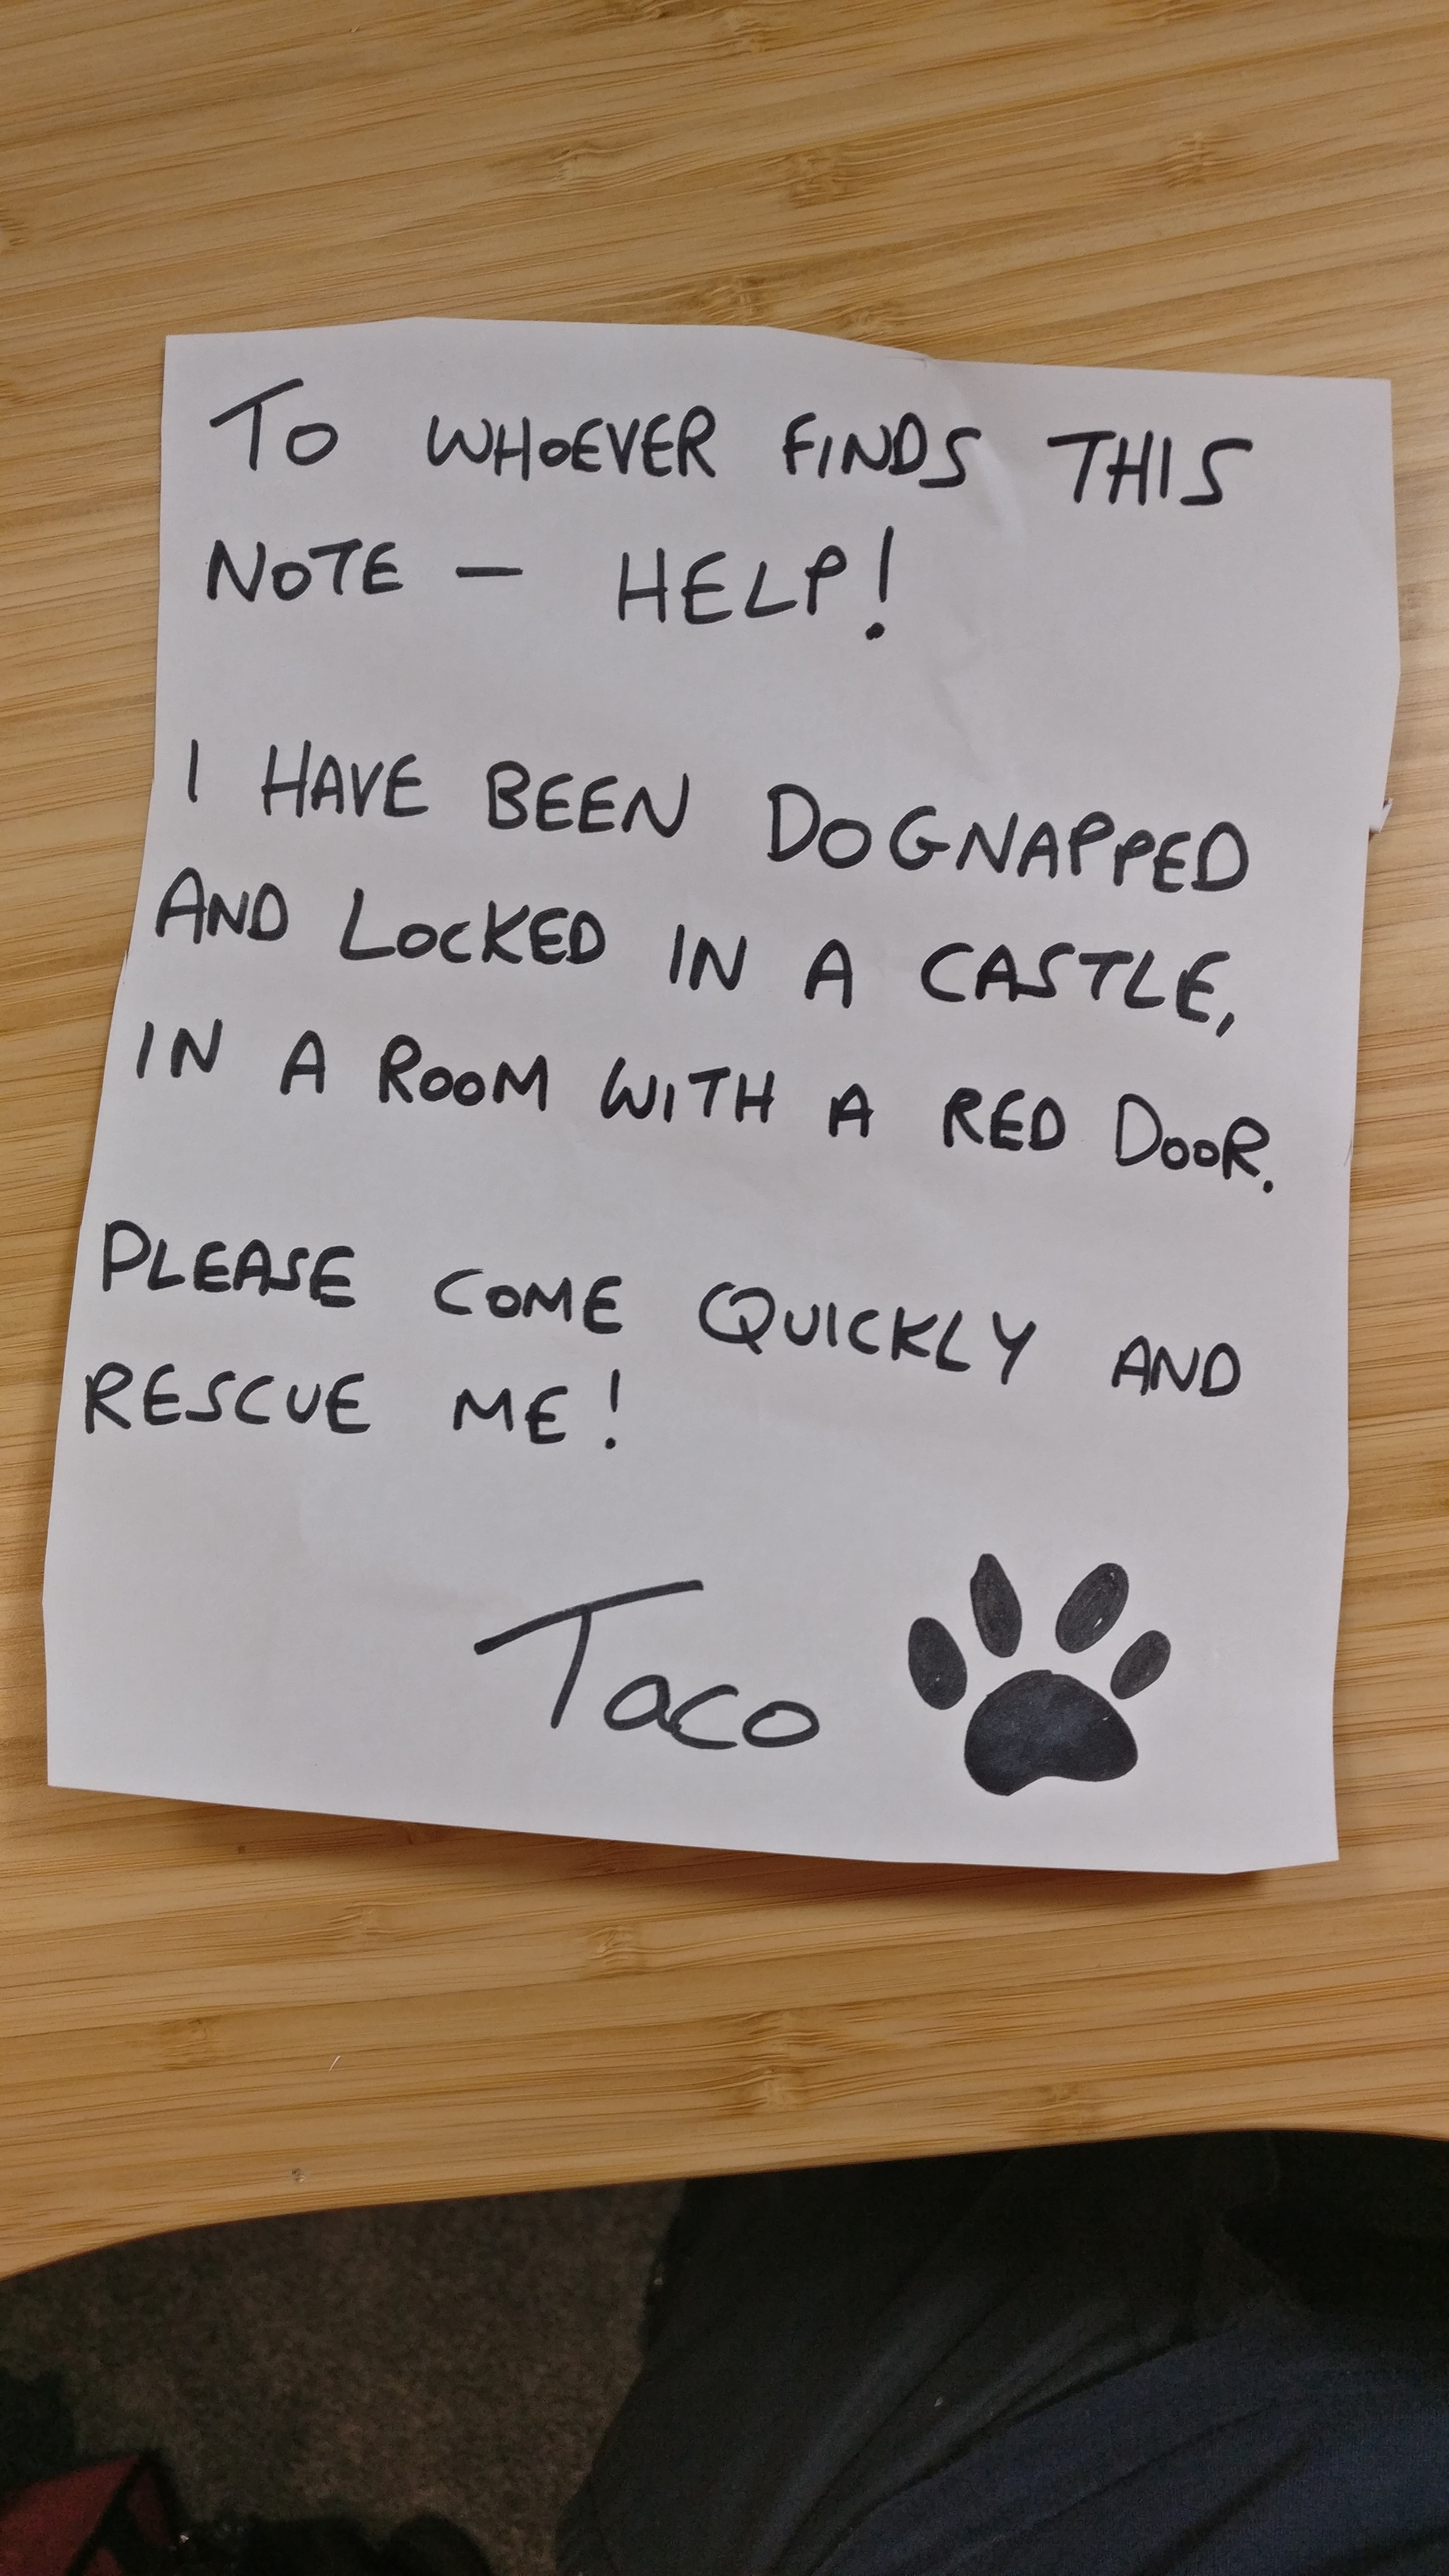 TO WHOEVER FINDS THIS
NOTE – HELP!
I HAVE BEEN DOGNAPPED
AND LOCKED IN A CASTLE,
IN A ROOM WITH A RED DOOR.
PLEASE COME QUICKLY AND
RESCUE ME!
Taco